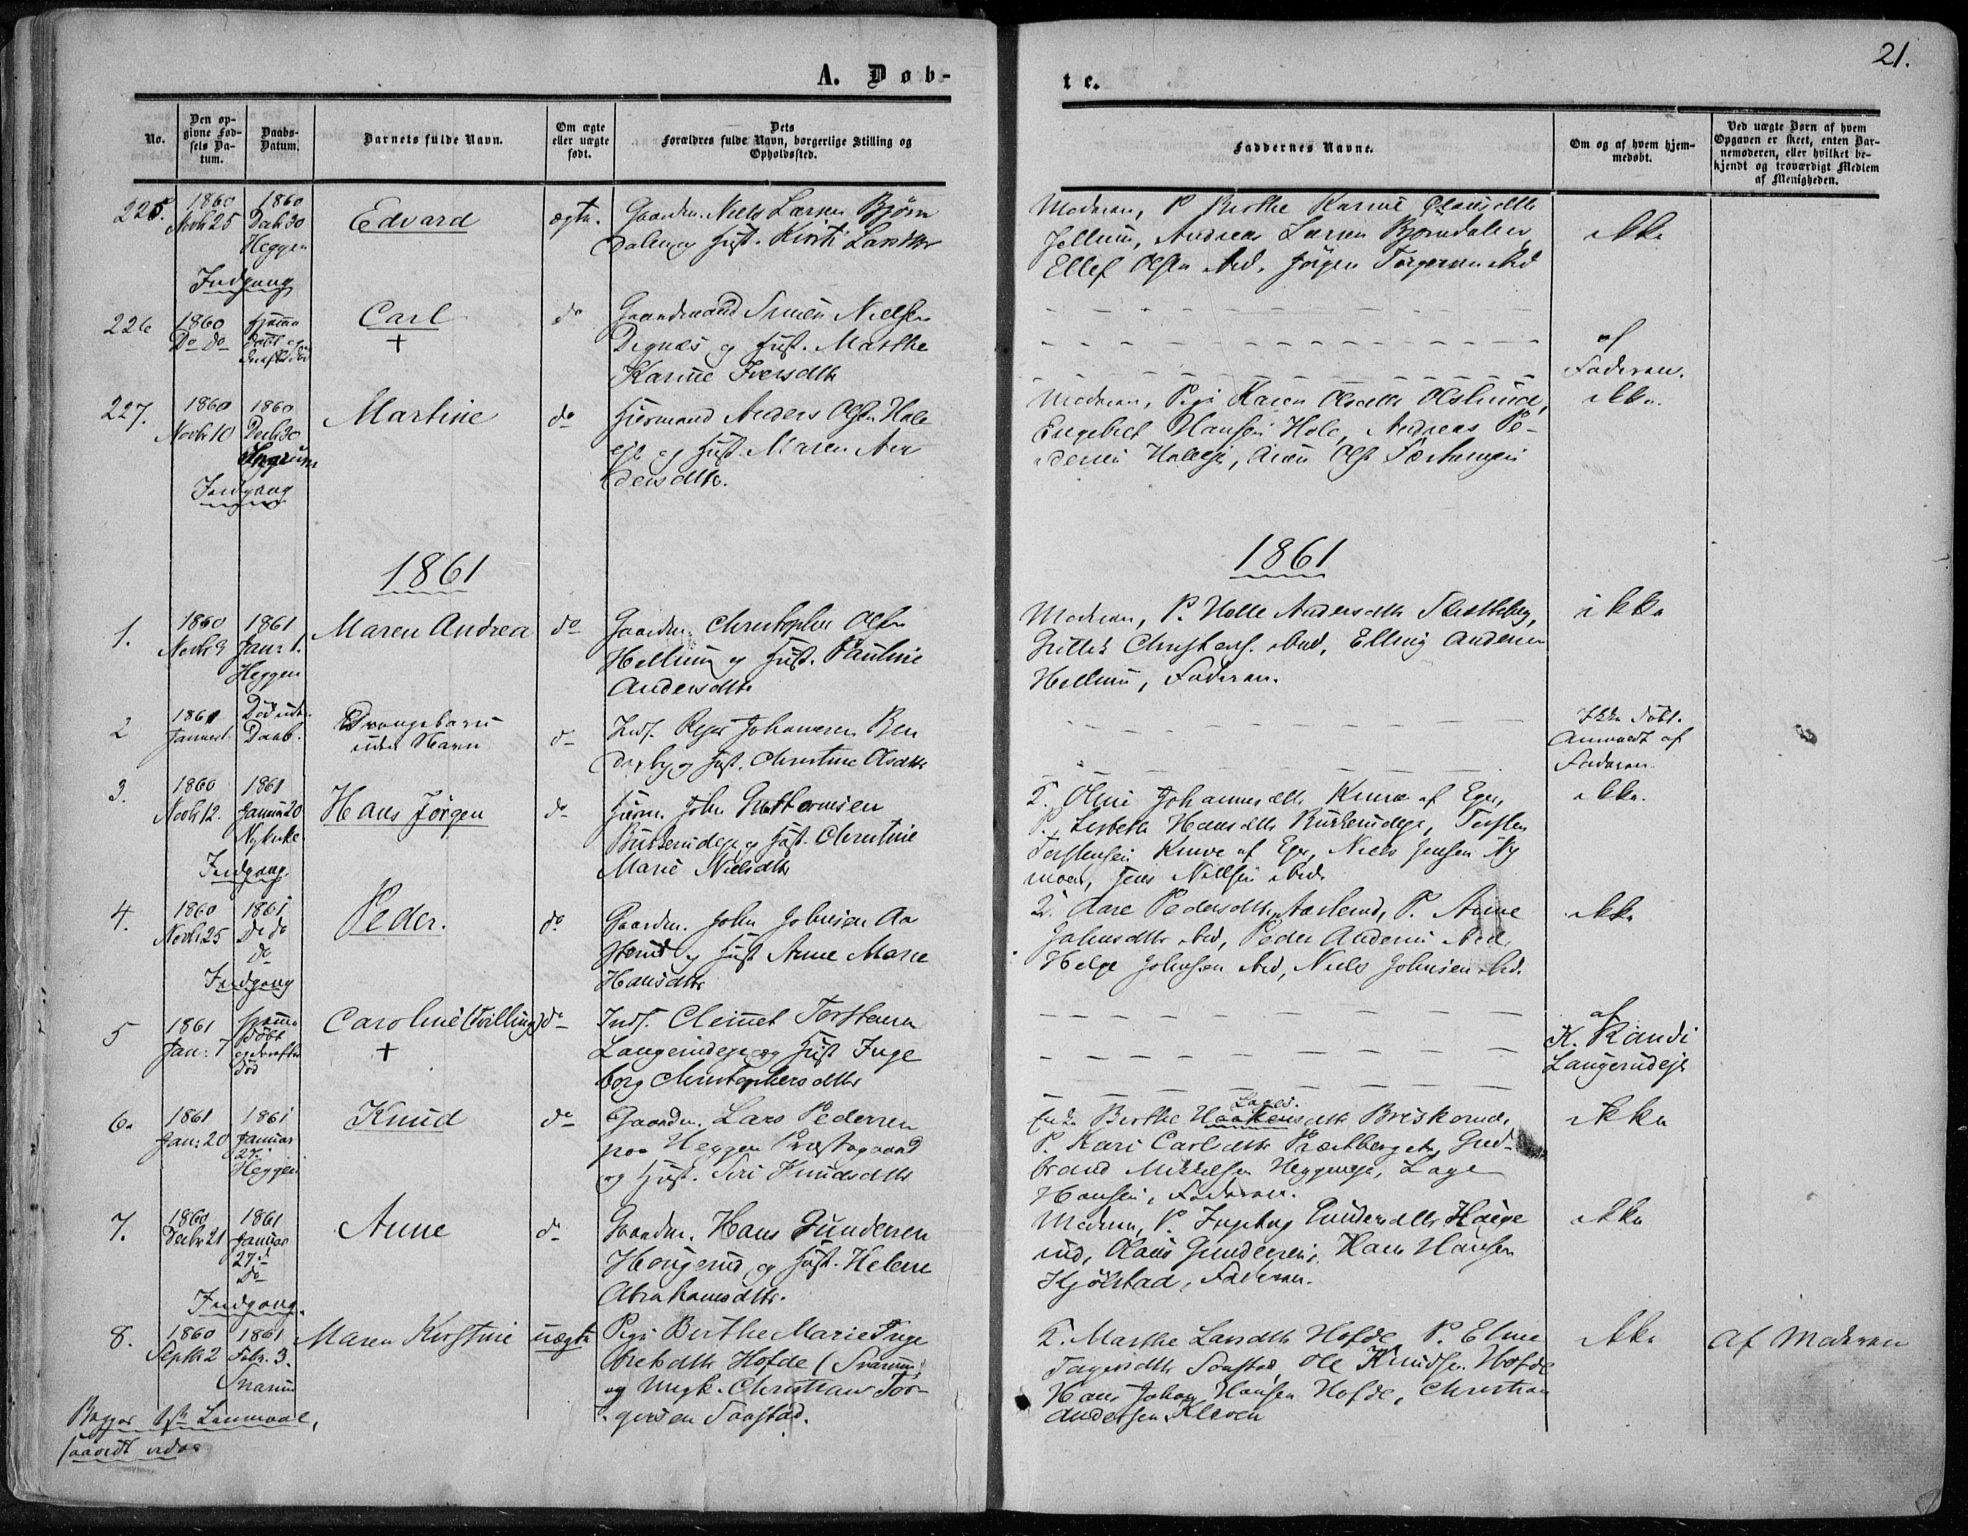 21.
A. Døb-
te.
No.
Den op-
givne Fød-
sels Da-
tum.
Daabs-
Datum.
Barnets fulde Navn.
Om ægte
eller uægte
født.
Dets
Forældres fulde Navn, borgerlige Stilling og
Opholdssted.
Faddernes Navne.
Om og af hvem hjem-
medøbt.
Ved uægte Børn af hvem
Opgaven er skeet, enten Bar-
nemoderen, eller hvilket be-
kjendt og troværdigt Medlem
af Menigheden.
225.
1860
Novbr 25
1860
Decb 30
Heggen
Indgang
Edvard
ægte.
Gaardm. Niels Larsen Bjørn
dalen og Hust. Kirsti Larsdtr
Moderen, P. Berthe Karine Olausdtr
Jellum, Andreas Larsen Bjørndalen,
Ellef Olsen ibid, Jørgen Torgersen ibid
ikke
226
1860
Do Do
Hjemme
døbt og
derefter død
Carl
+
do
Gaardmand Simen Nielsen
Dignæs og Hust. Marthe
Karine Iversdtr
af
Faderen.
227.
1860
Novbr 10
1860
Decbr 30
Indgang
Martine
do
Huusmand Anders Olsen Hole
eje og Hust. Maren An
dersdtr.
Moderen, Pige Karen Olsdtr
Engebret Hansen Hole, Andreas Pe-
dersen Holeeje,
ikke.
1861
1861
1.
1860
Novbr 9
1861
Jan: 1.
Heggen
Maren Andrea
do
Gaardm. Christopher Olsen
Hellum og Hust. Pauline
Andersdtr
Moderen, P. Helle Andersdtr
Christens. ibid, Elling Andersen
Hellum, Faderen.
ikke
2
1861
Januar 1.
Død uden
Daab.
Drengebarn
uden Navn
do
Inds. Johannesen Ben
derby og Hust. Christine Olsdtr
Ikke døbt.
Anmeldt af
Faderen.
3.
1860
Novbr 12.
1861
Januar 20
Nykirke
Indgang
Hans Jørgen
do
Huusm. John Guttormsen
Buskerudeje og Hust. Christine
Marie Nielsdtr
K. Oline Johannesdtr Kruse af Eger,
P. Lisbeth Hansdtr Buskerudeje, Torsten
Torstensen Kruse af Eger, Niels Jensen Ny
moen, Jens Nilsen ibid.
ikke.
4.
1860
Novbr 25
1861
Do do
do
Indgang
Peder.
do
Gaardm. John Johnsen Aa
serud og Hust. Anne Marie
Hansdtr
K. Aase Pedersdtr Aaserud, P. Anne
Johnsdtr ibid, Peder Andersen ibid.
Helge Johnsen ibid, Niels Johnsen ibid.
ikke
5
1861
Jan: 7
hjemme
døbt
og derefter
død
Caroline (Tvilling)
+
do
Inds. Clemet Torstensen
Langerudeje og Hust. Inge
borg Christophersdtr
af
K. Randi
Langerudeje
6.
1861
Jan: 20
1861
Januar
27.
Heggen
Knud
do
Gaardm. Lars Pedersen
paa Heggen Præstegaard
og Hust. Siri Knudsdtr
Lages.
Enke Berthe Haakensdtr Briskerud,
P. Kari Carlsdtr Præstberget, Gud-
brand Mikkelsen Heggeneje, Lage
Hansen, Faderen.
ikke
7.
1860
Decbr 21
1861
Januar
27.
Do
Indgang.
Anne
do
Gaardm. Hans Gundersen
Hougerud og Hust. Helene
Abrahamsdtr.
Moderen, P. Ingeborg Gundersdtr Houge
rud, Olaus Gundersen, Hans Hansen
Kjølstad, Faderen.
ikke
8.
1860
Septbr 2
1861
Febr. 3.
Snarum
Maren Kirstine
uægte
Pige Berthe Marie Inge
bretsdtr Hofde (Snarum)
og Ungk. Christians Tor-
gersen Saastad.
K. Marthe Larsdtr Hofde, P. Eline
Torgersdtr Saastad, Ole Knudsen Hofde
Hans Johan Hansen Hofde, Christian
Andersen Kleven
ikke
Af Moderen
Begges 1ste Leiermaal,
saavidt vides